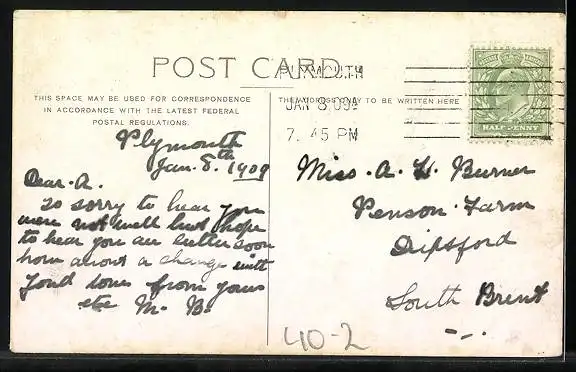 POST CARD
PLYMOUTH
JAN 8 09
7. 45 PM
HALFPENNY
THIS SPACE MAY BE USED FOR CORRESPONDENCE
IN ACCORDANCE WITH THE LATEST FEDERAL
POSTAL REGULATIONS.
THE ADDRESS ONLY TO BE WRITTEN HERE
Plymouth
Jan. 8th 1909
Dear. A.
So sorry to hear you
were not well but hope
to hear you are better soon
how about a change with
fond love from yours
etc M. B.
Miss. A. H. Burner
Penson Farm
Dipsford
South Brent
40-2